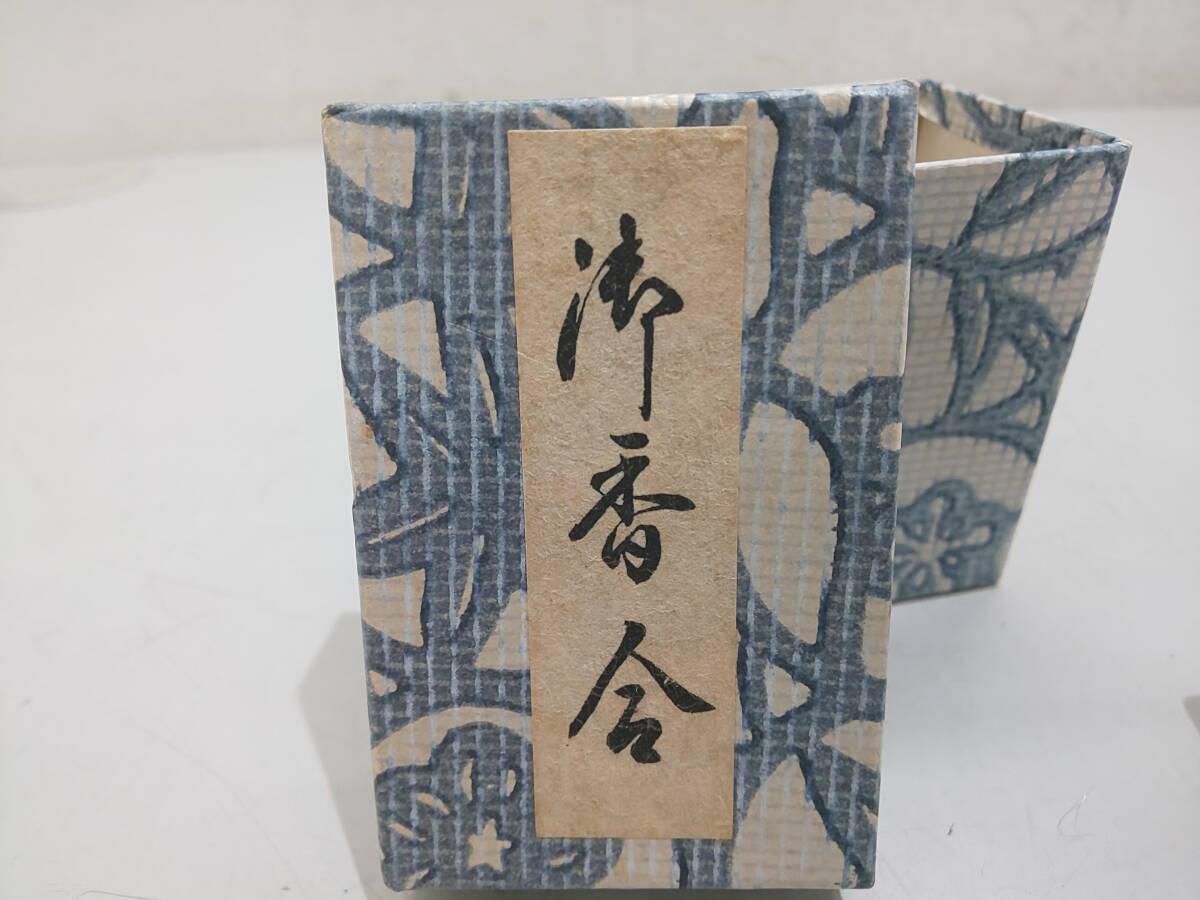 御香合